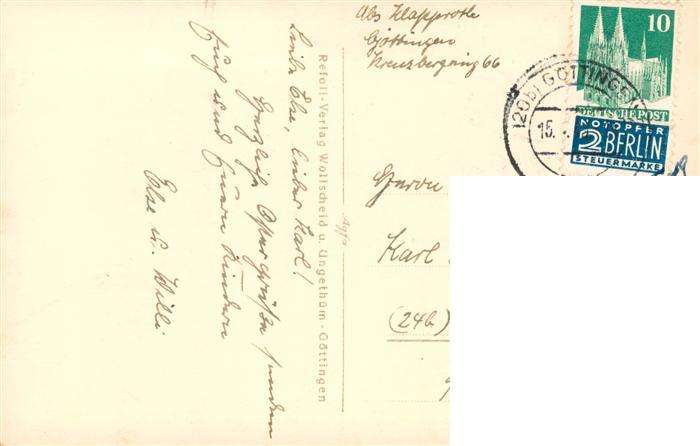 Abs Klapproth
Göttingen
Kreuzbergring 66
10
DEUTSCHE POST
NOTOPFER
2 BERLIN
STEUERMARKE
(20b) GÖTTINGEN
15.
Liebe Else, lieber Karl!
Herzliche Ostergrüße senden
Euch und Euern Kindern
Else u. Willi
Refoli-Verlag Wollscheid u. Ungethüm - Göttingen
Herrn
Karl
(24b)